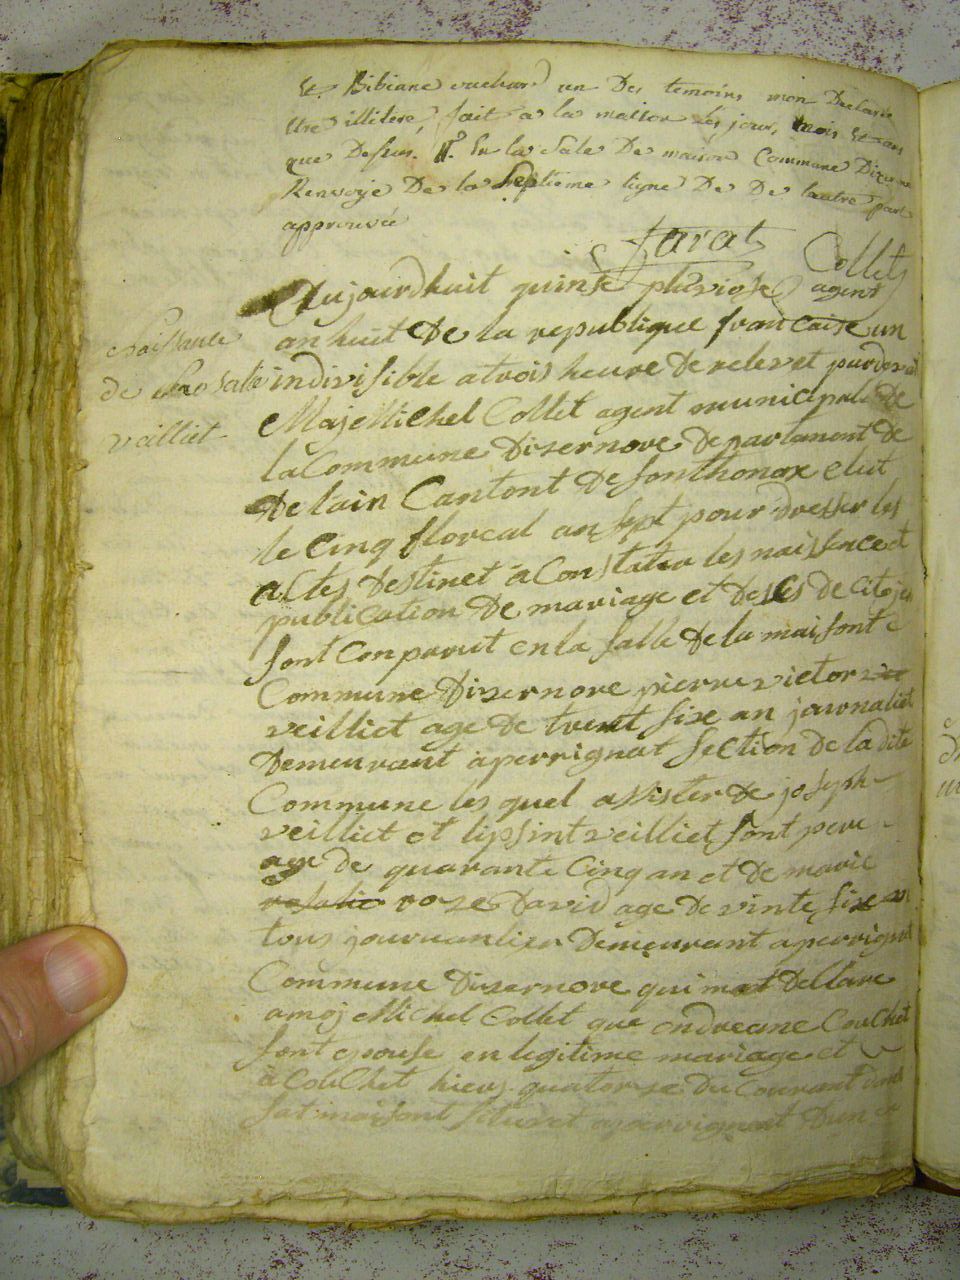 et Bibiane vuchar un Des temoins mon Declaré
Etre illitere, fait a la maison les jour, mois et ans
que Dessus. En la sale De maison Commune Dizernore
Renvoye De la Septieme ligne De De lautre part
approuvée
favat
Collet
agent
Aujourdhuit quinse pluviose
an huit De la republique francaise un
naissance
de Rosalie
veilliet
indivisible a trois heure De relevet pardevan
Moj Michel Collet agent municipale De
la Commune Dizernore Departanent De
De lain Cantont De sonthonax elut
le Cinq floreal an sept pour Dresser les
actes Destinet a Constater les naissence et
publication De mariage et deses de citojen
sont Conparut en la salle De la maisont
Commune Dizernore pierre victor
veilliet age de trent sixe an journaliet
Demeurant a perrignat section De la dite
Commune les quel assister De joseph
veilliet et veilliet sont pere
age de quarante Cinq an et De marie
rosalie roze David age De vinte sixe an
tous journanlier Demeurant a perrignat
Commune Dizernore qui mat Dellare
a moj Michel Collet que endreane Couchet
sont epouse en legitime mariage et
a Couchet hiers quatorse Du Courant dans
sat maisont situet a perrignat Dun en